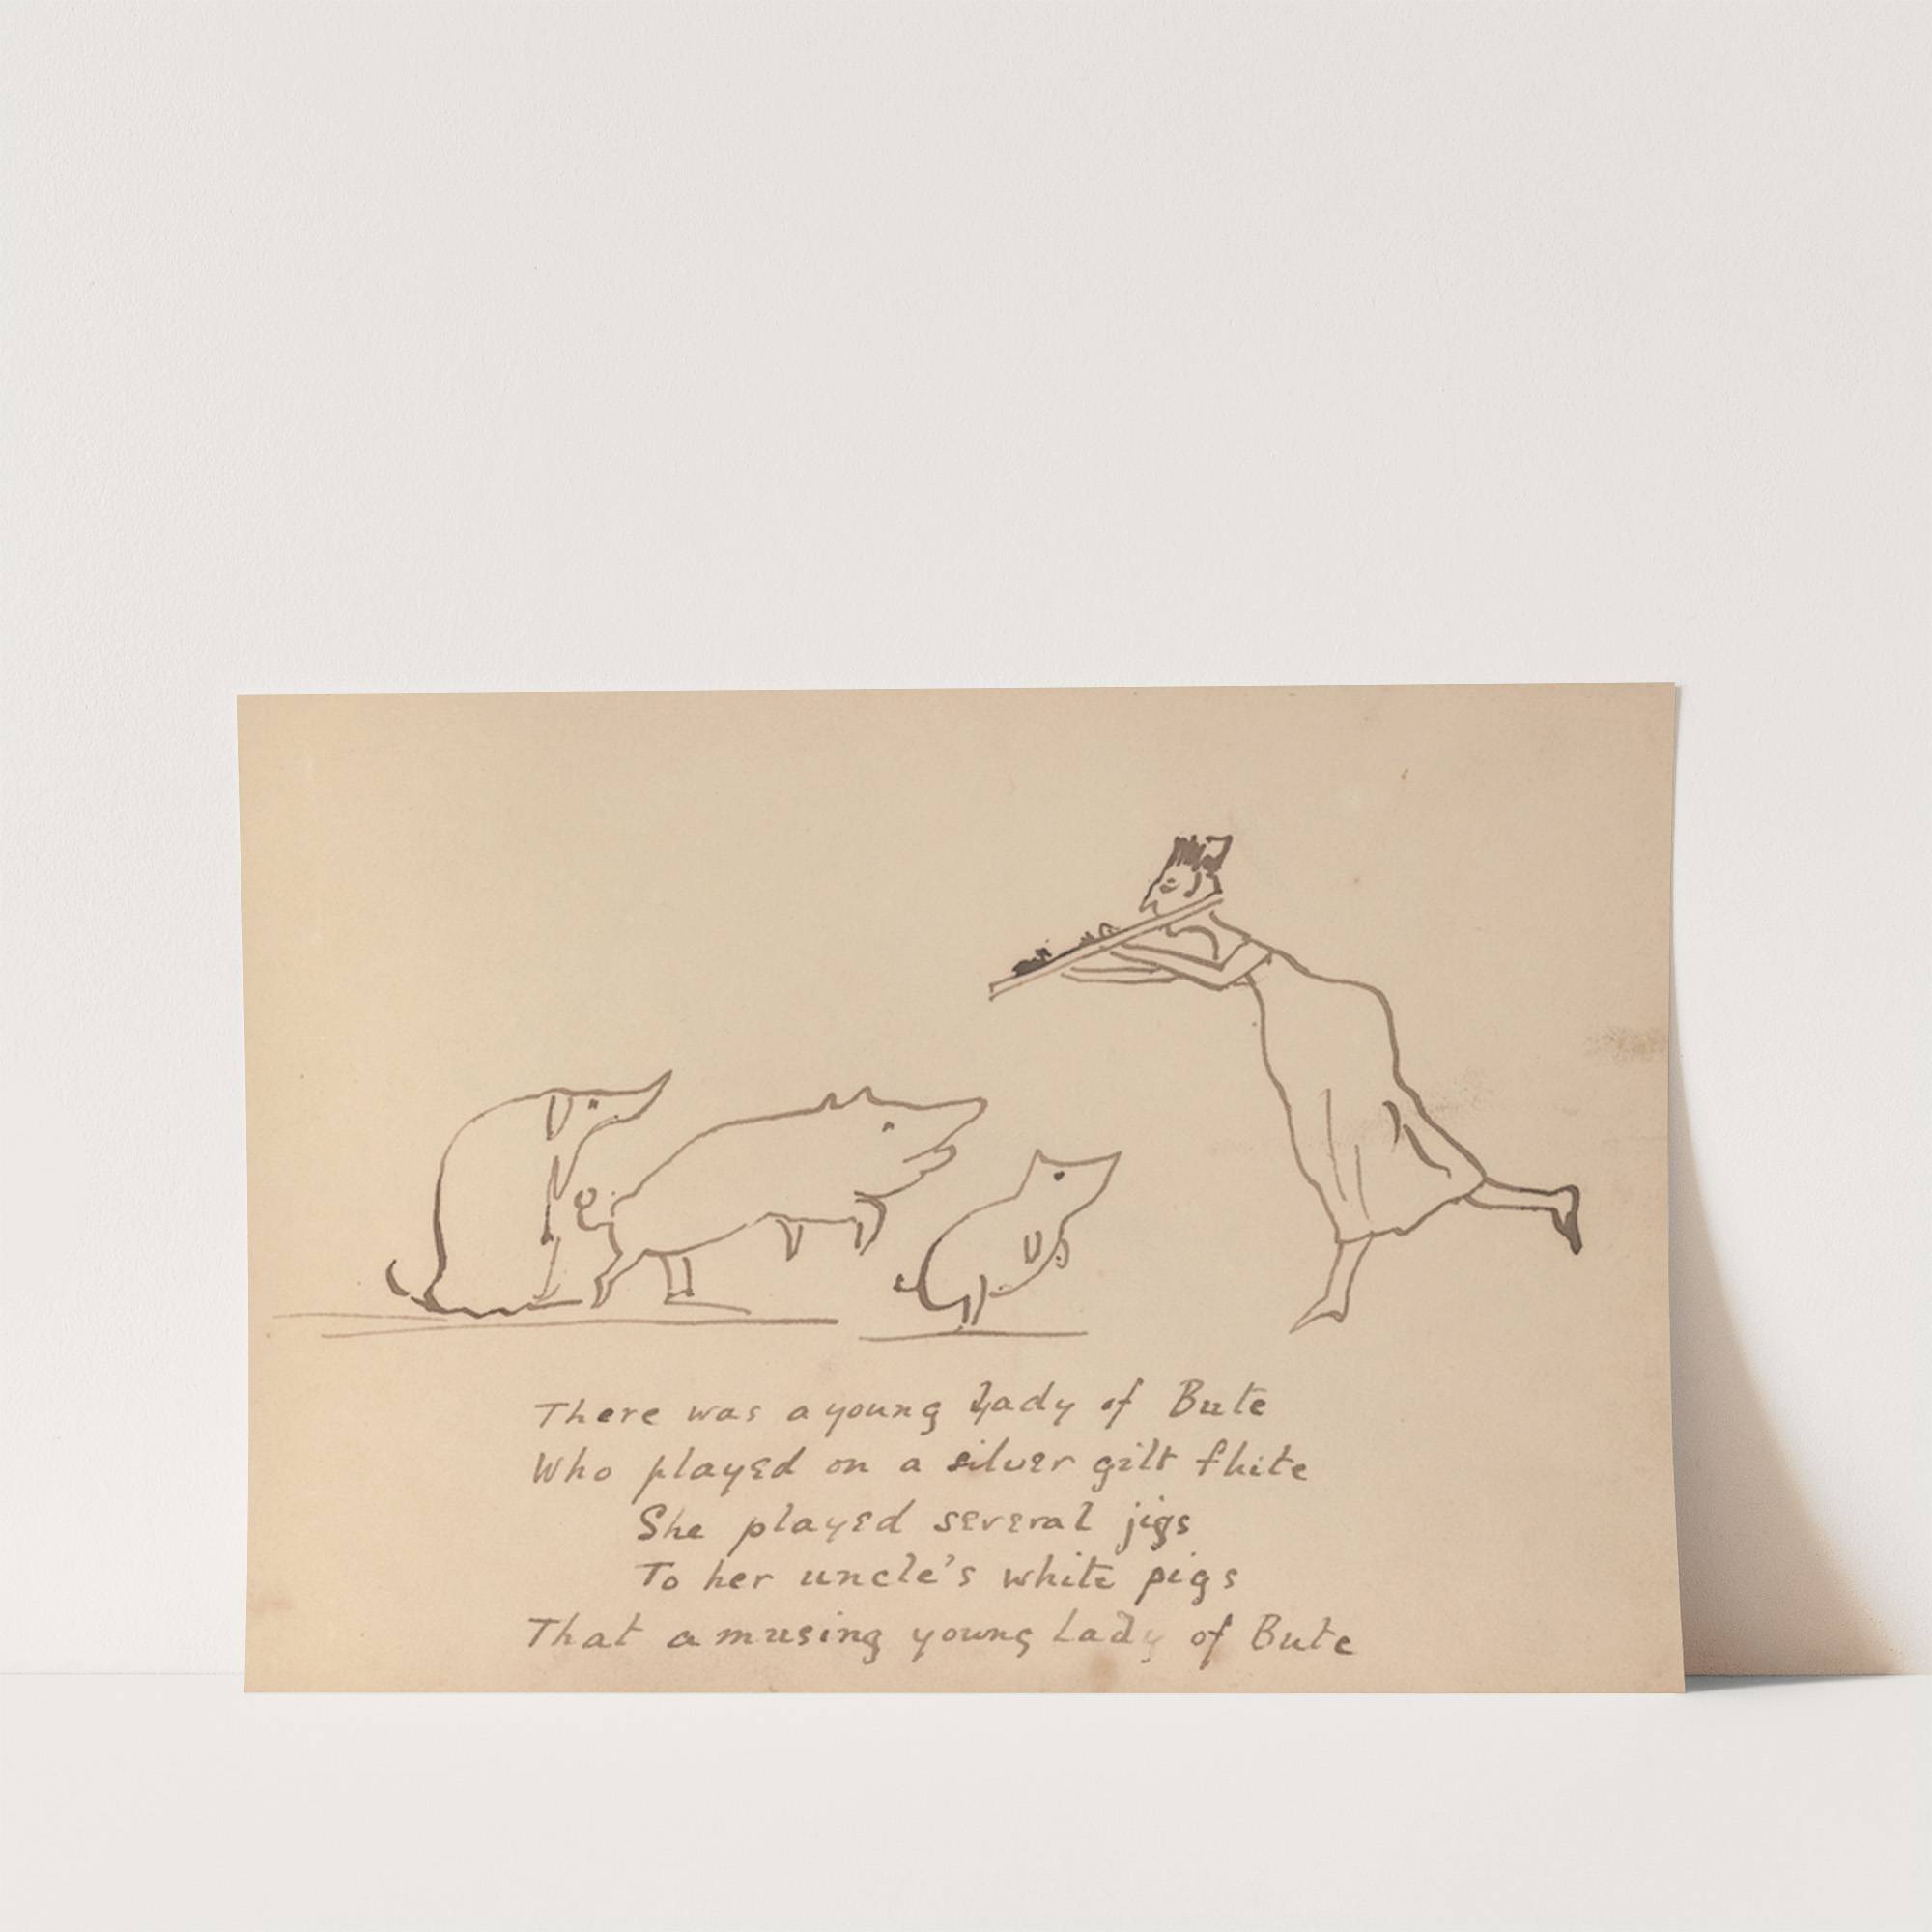 There was a young Lady of Bute
Who played on a silver gilt flute
She played several jigs
To her uncle's white pigs
That amusing young Lady of Bute